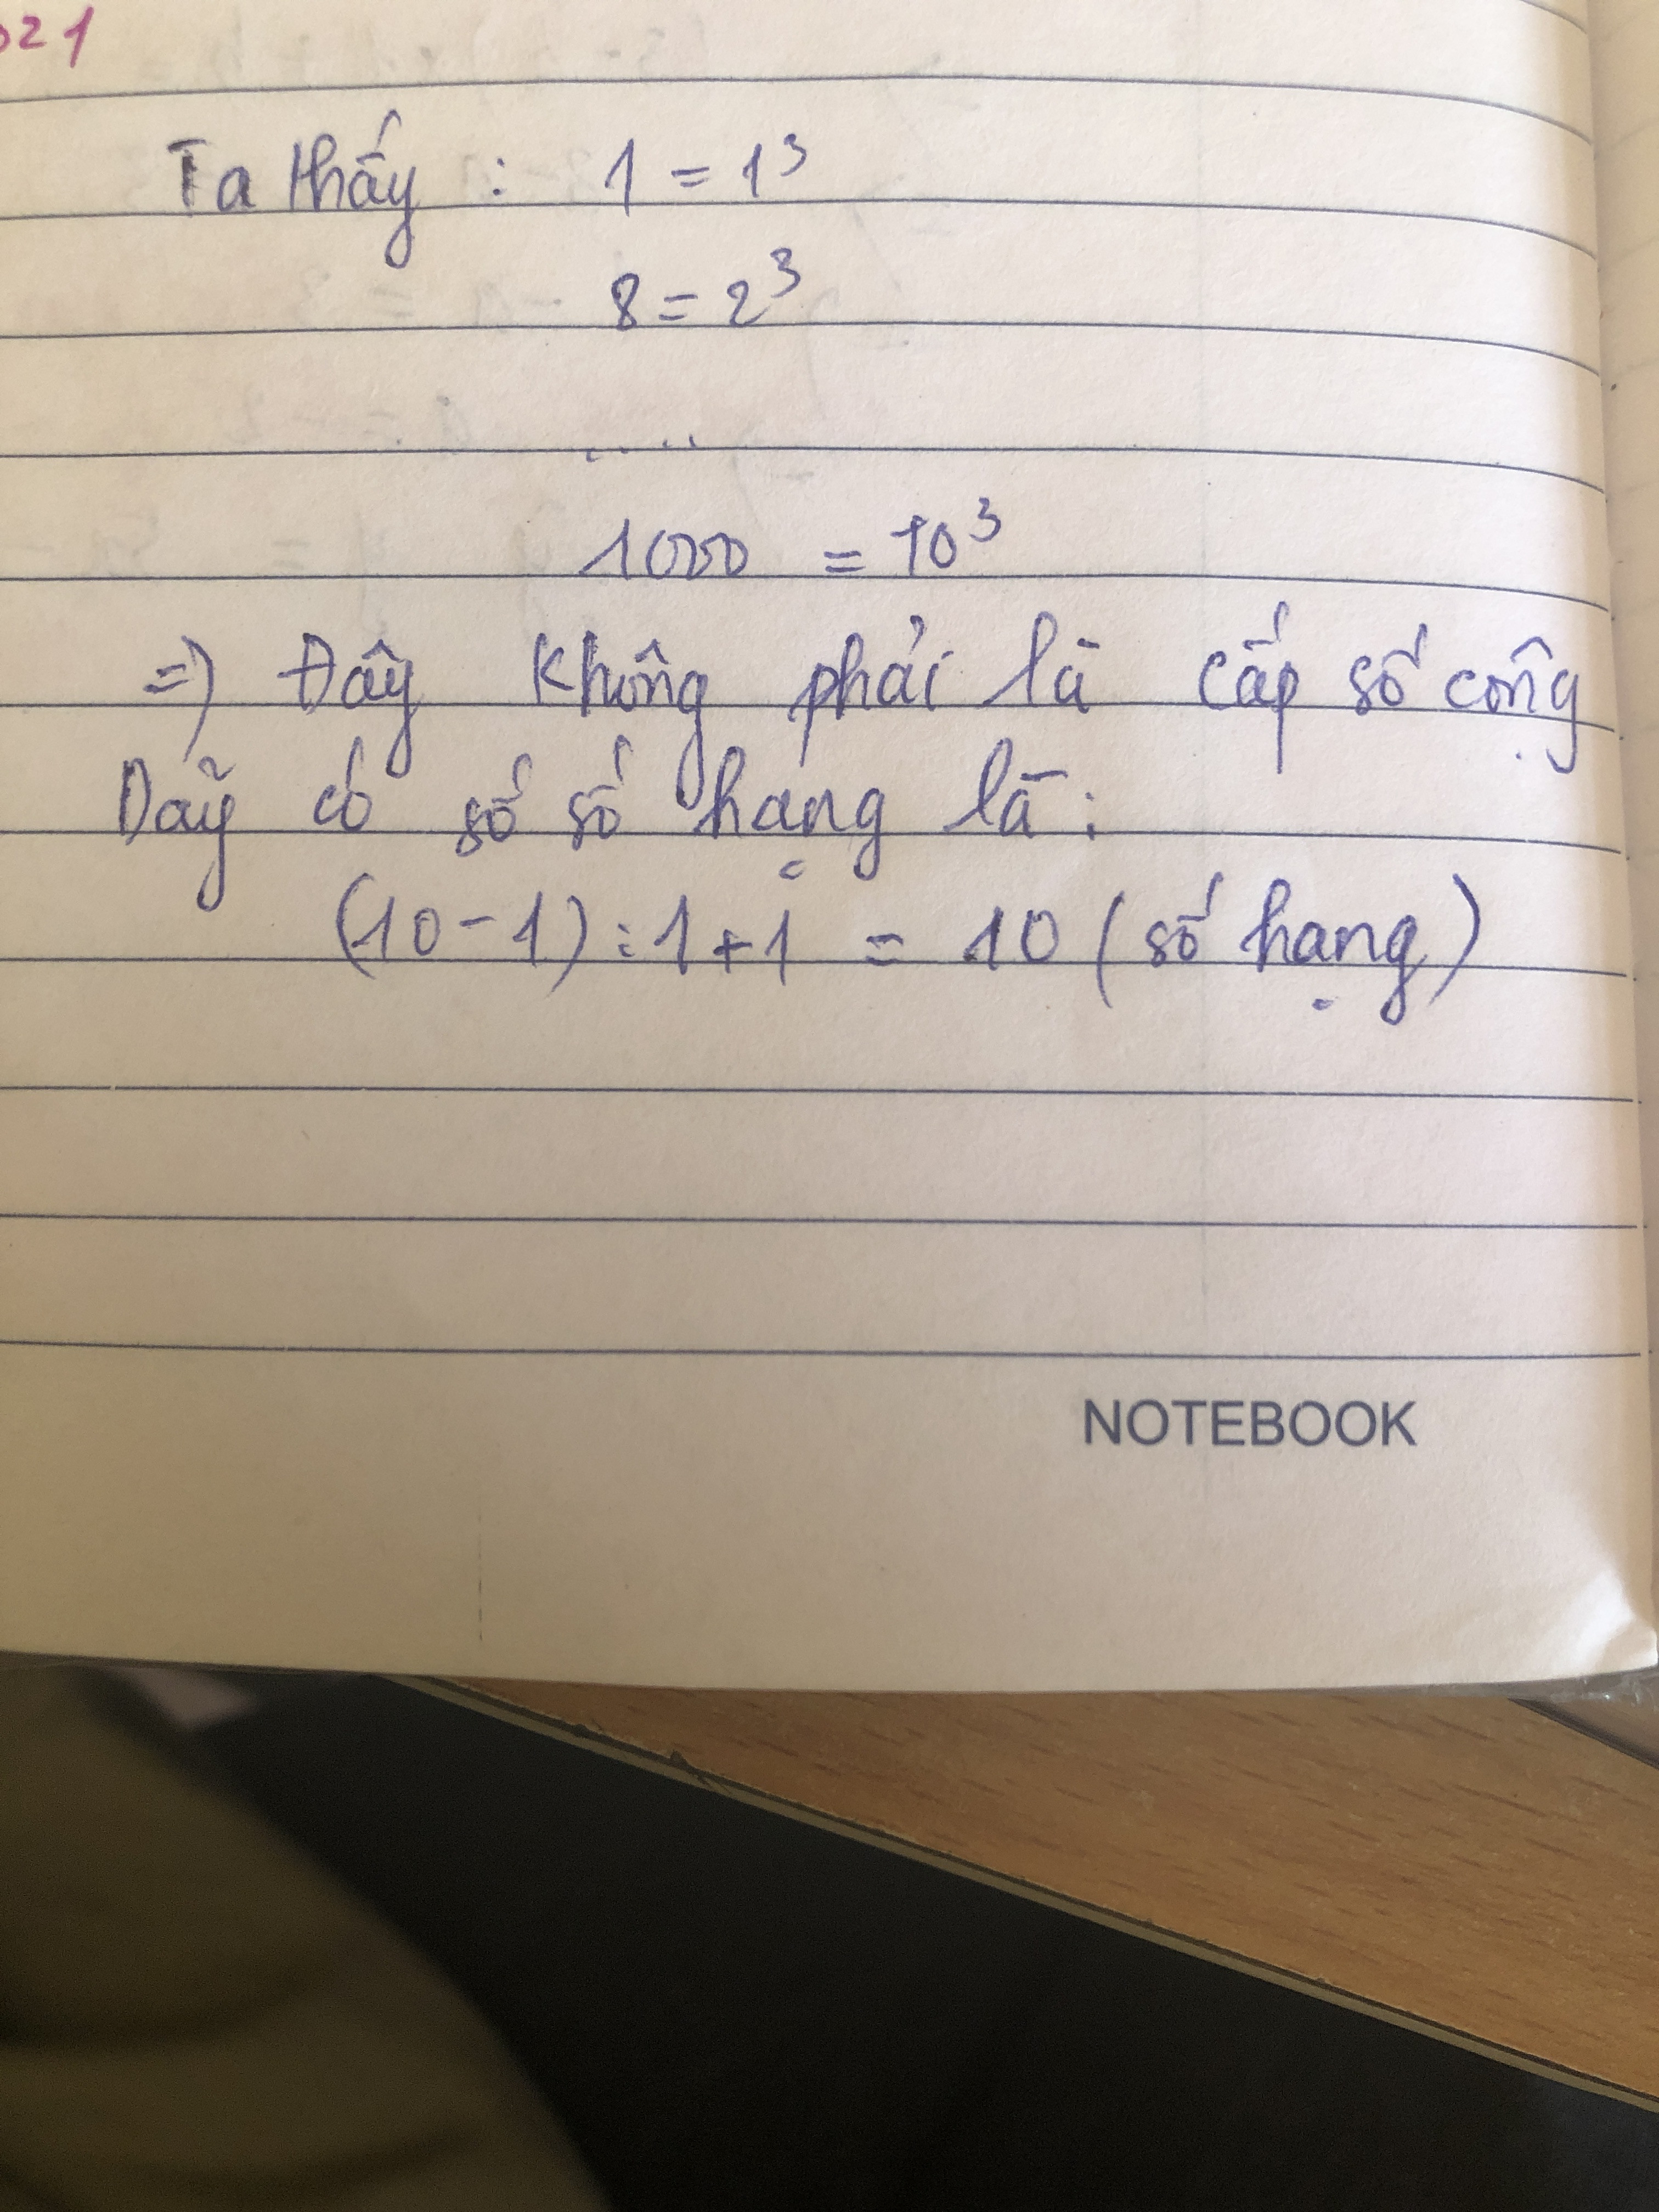 021
Ta thấy : 1 = 1³
8 = 2³
.....
1000 = 10³
=) Đây không phải là cấp số cộng
Dãy có số số hạng là :
(10 - 1) : 1 + 1 = 10 ( số hạng )
NOTEBOOK